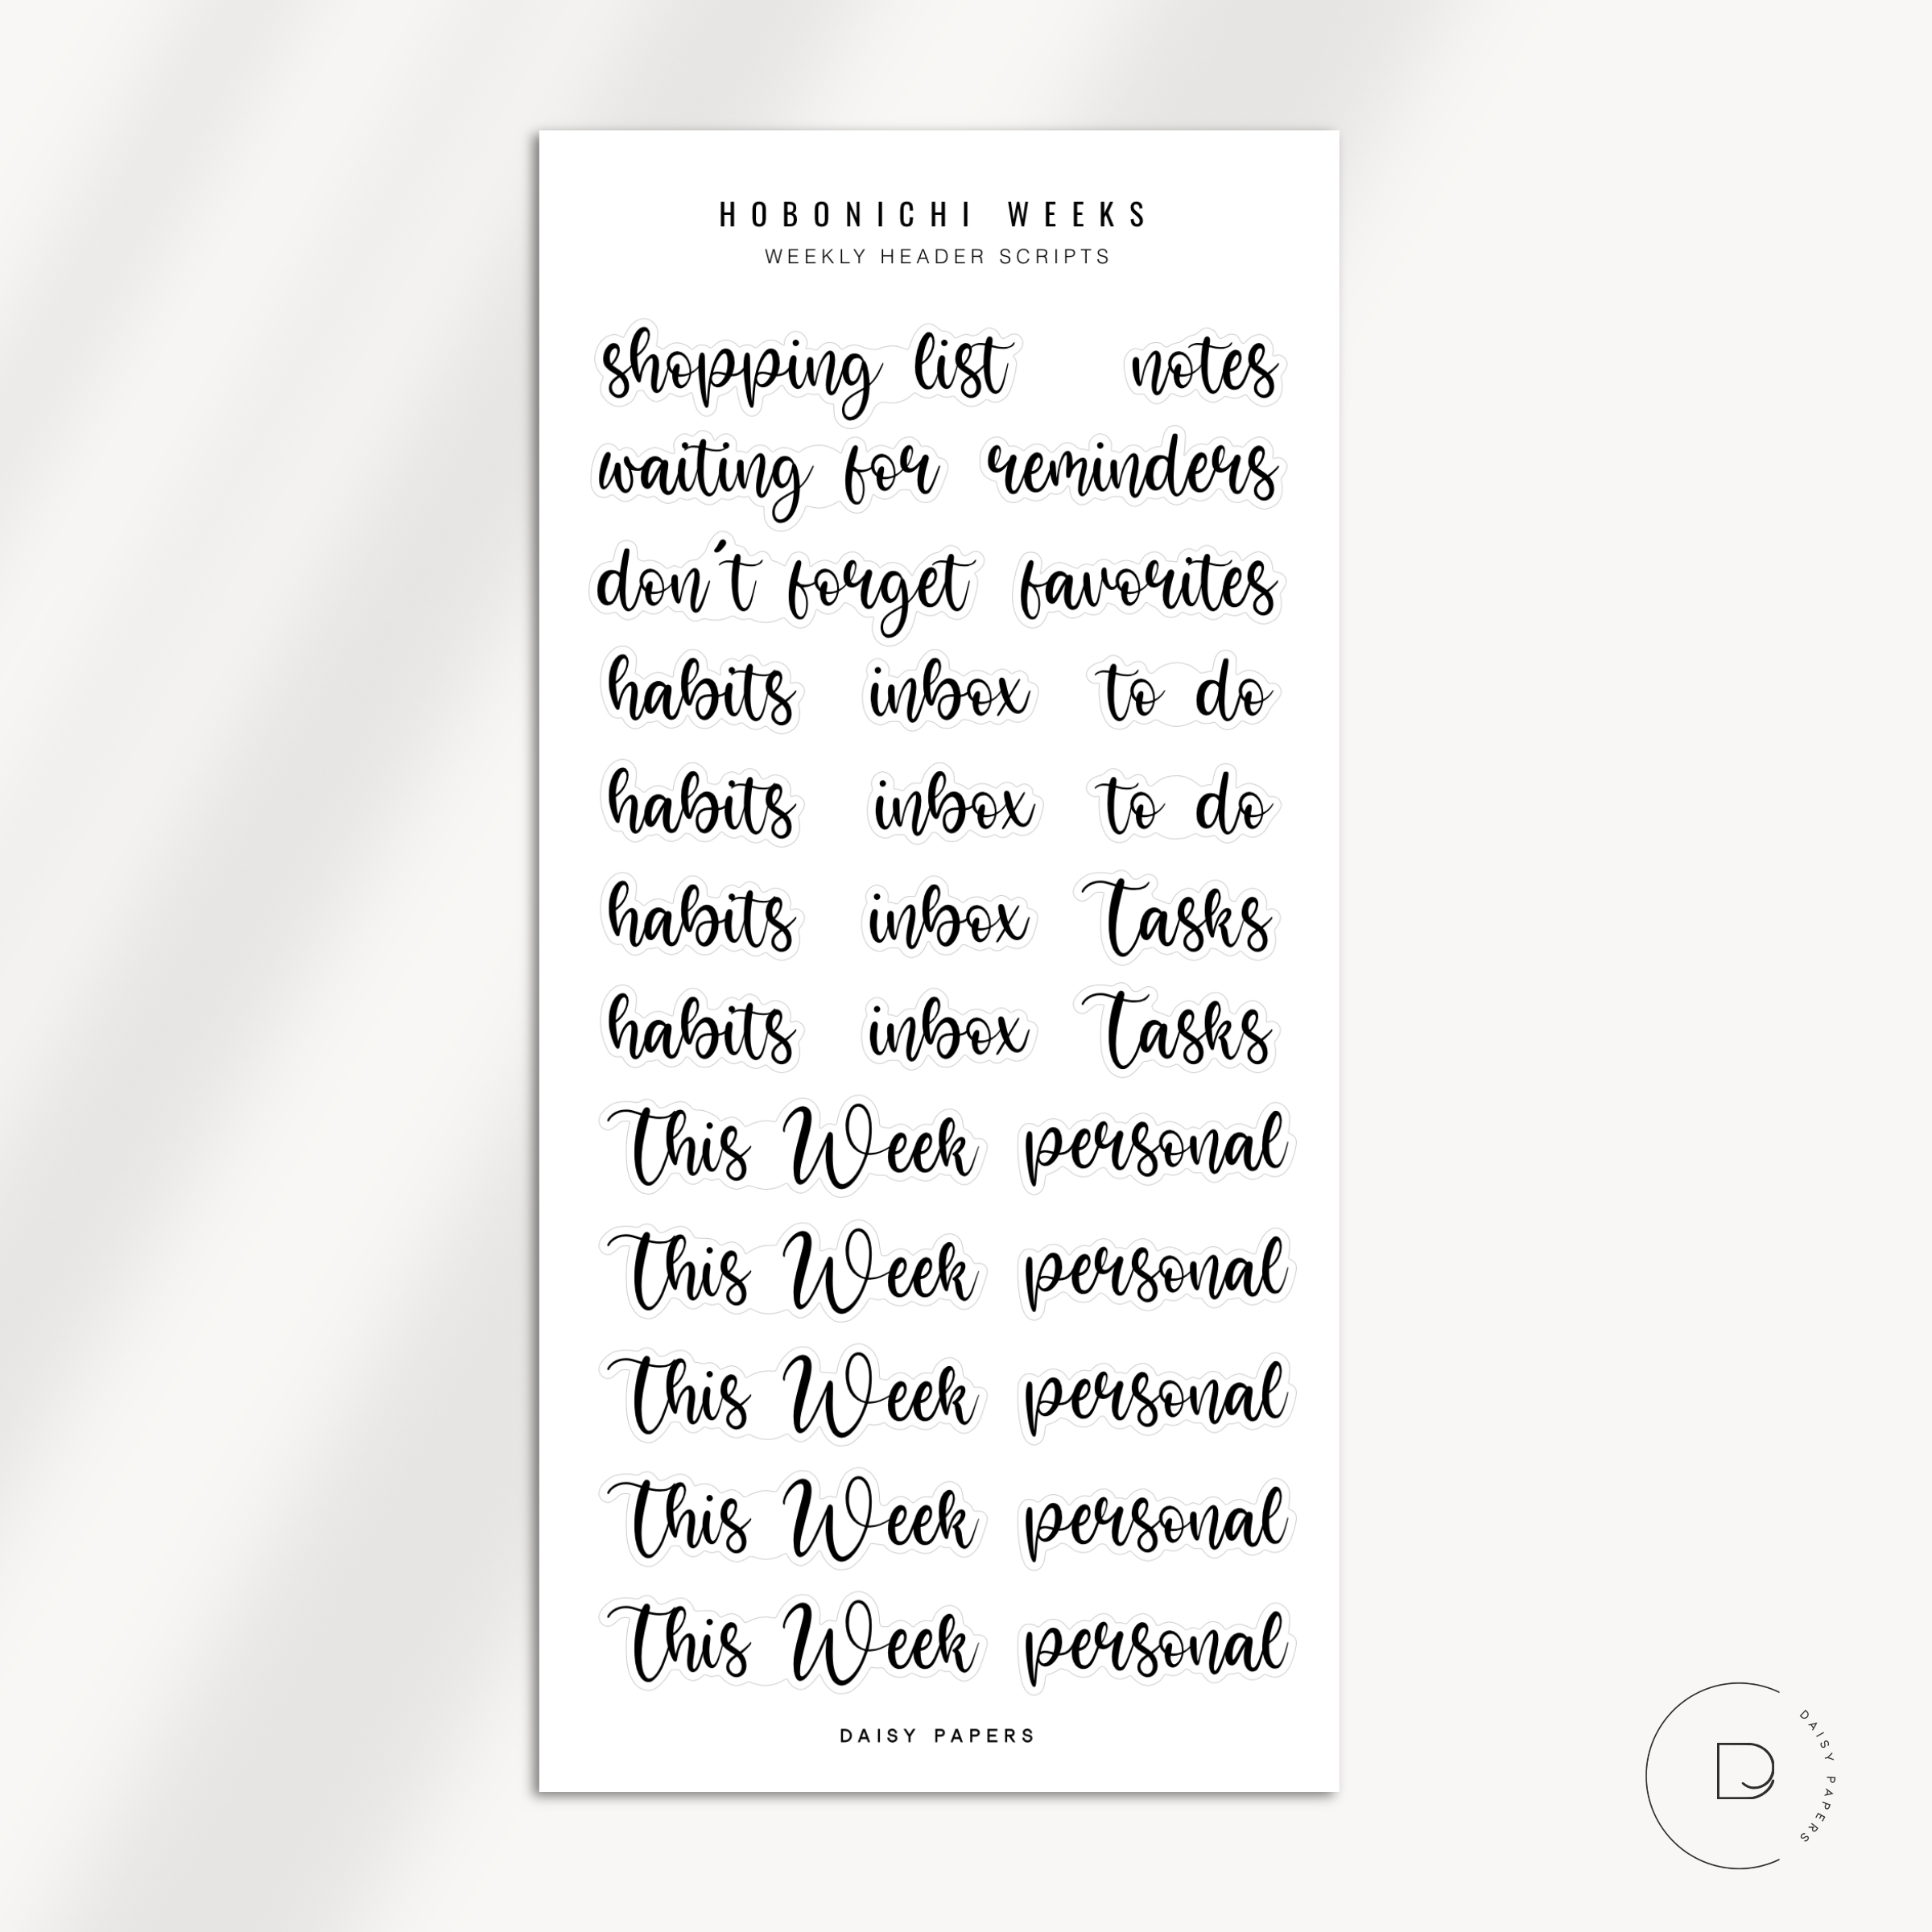 HOBONICHI WEEKS
WEEKLY HEADER SCRIPTS
shopping list notes
waiting for reminders
don't forget favorites
habits inbox to do
habits inbox to do
habits inbox Tasks
habits inbox Tasks
This Week personal
This Week personal
This Week personal
This Week personal
This Week personal
DAISY PAPERS
D
DAISY PAPERS